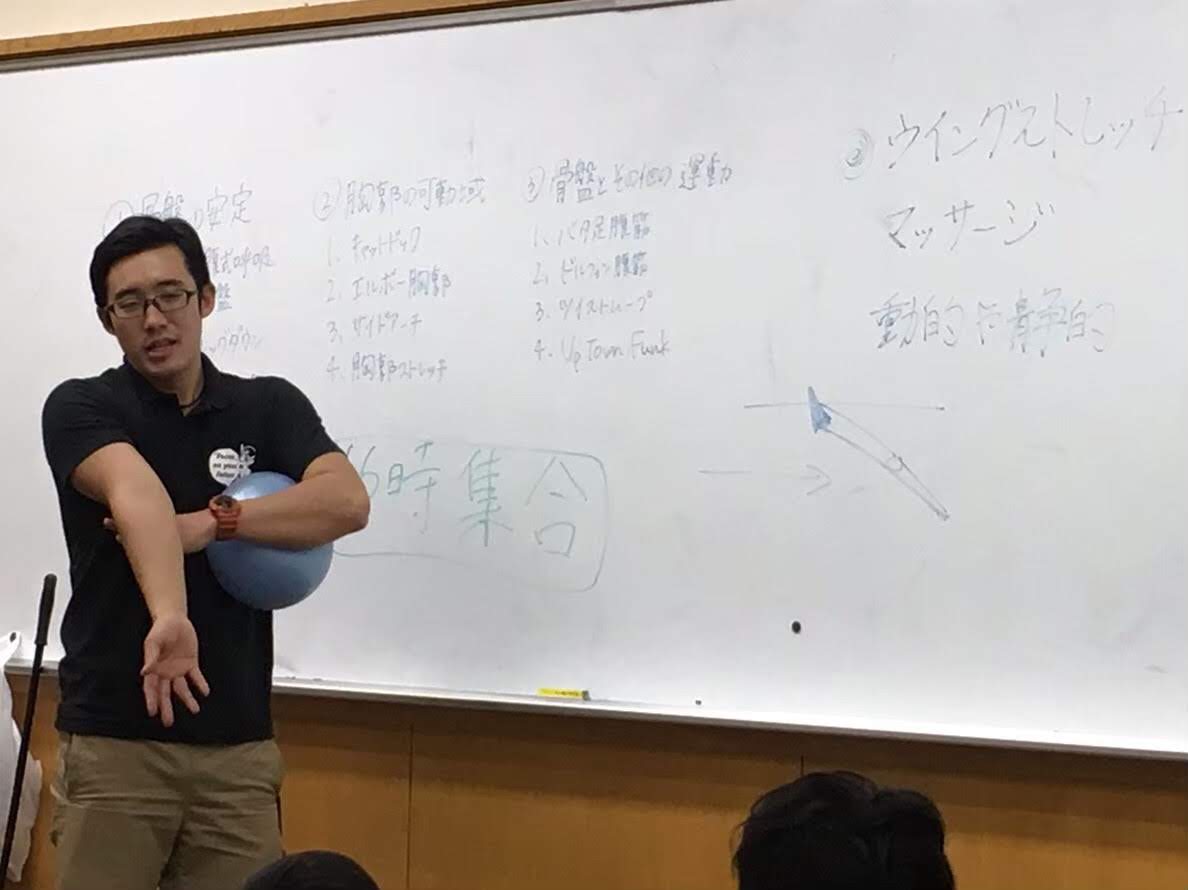 の安定
腹式呼吸
盤
ッグダウン
② 胸郭の可動域
1. キャットドッグ
2. エルボー胸郭
3. サイドアーチ
4. 胸郭ストレッチ
③ 骨盤とその他の運動
1. バタ足腹筋
2. ドルフィン腹筋
3. ツイストループ
4. Up Town Funk
ウイングストレッチ
マッサージ
動的 静的
時集合
Focus
on your